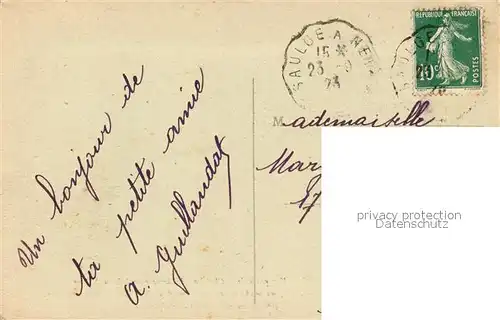 Un bonjour de
ta petite amie
A. Guillaudat
SAULGE A
15
23 - 9
23
REPUBLIQUE FRANÇAISE
10c
POSTES
Mademoiselle
Mar
17
privacy protection
Datenschutz